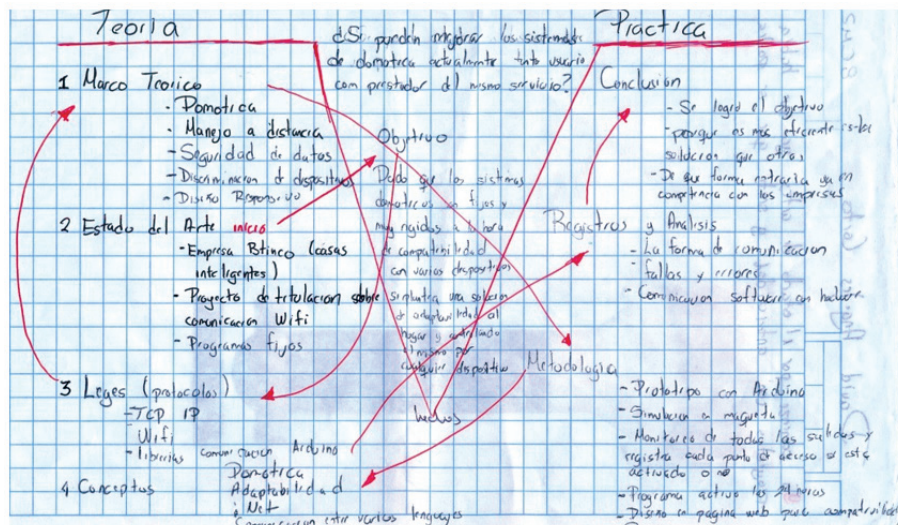 Teoria
1 Marco Teorico
- Domotica
- Manejo a distancia
- Seguridad de datos
- Discriminacion de dispositivos
- Diseño Responsivo
2 Estado del Arte inicio
- Empresa Btinco (casas
inteligentes)
- Proyecto de titulacion sobre
comunicacion Wifi
- Programas fijos
3 Leyes (protocolos)
- TCP IP
- Wifi
- librerias comunicacion Arduino
4 Conceptos
Domotica
Adaptabilidad
Net
Comunicacion entre varios lenguajes
¿Se pueden mejorar los sistemas
de domotica actualmente tanto usuario
como prestador del mismo servicio?
Objetivo
Dado que los sistemas
domoticos son fijos y
muy rigidos a la hora
de compatibilidad
con varios dispositivos
se plantea una solucion
de adaptabilidad al
hogar y controlado
el mismo por
cualquier dispositivo
hechos
Practica
Conclusion
- Se logró el objetivo
- porque es mas eficiente esta
solucion que otras
- De que forma entraria ya en
competencia con las empresas
Registros y Analisis
- La forma de comunicacion
- fallas y errores
- Comunicacion software con hardware
Metodologia
- Prototipo con Arduino
- Simulacion en maqueta
- Monitoreo de todas las salidas y
registra cada punto de acceso si esta
activado o no
- Programa activo las 24 horas
- Diseño en pagina web para compatibilidad